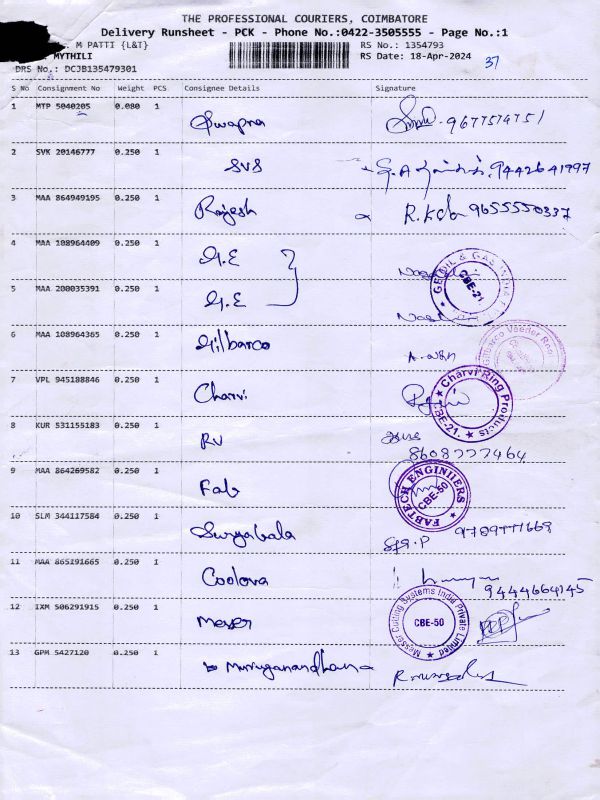 THE PROFESSIONAL COURIERS, COIMBATORE
Delivery Runsheet - PCK - Phone No.:0422-3505555 - Page No.:1
M PATTI {L&T}
RS No.: 1354793
MYTHILI
RS Date: 18-Apr-2024
37
DRS No.: DCJB135479301
S No Consignment No Weight PCS Consignee Details Signature
1 MTP 5040205 0.080 1 Swapna
2 SVK 20146777 0.250 1 SVS 9442641997
3 MAA 864949195 0.250 1 Rajesh 9655550337
4 MAA 108964409 0.250 1 G.E
GE OIL & GAS INDIA CBE-21
5 MAA 200035391 0.250 1 G.E
6 MAA 108964365 0.250 1 Gilbarco
Gilbarco Veeder Root
7 VPL 945188846 0.250 1 Charvi
Charvi Ring Products CBE-21.
8 KUR 531155183 0.250 1 RV
8608777464
9 MAA 864269582 0.250 1 Fab
FABTECH ENGINIIERS CBE-50
10 SLM 344117584 0.250 1 Suryabala
11 MAA 865191665 0.250 1 Coolova
9444664145
12 IXM 506291915 0.250 1 Messer
Messer Cutting Systems India Private Limited CBE-50
13 GPM 5427120 0.250 1